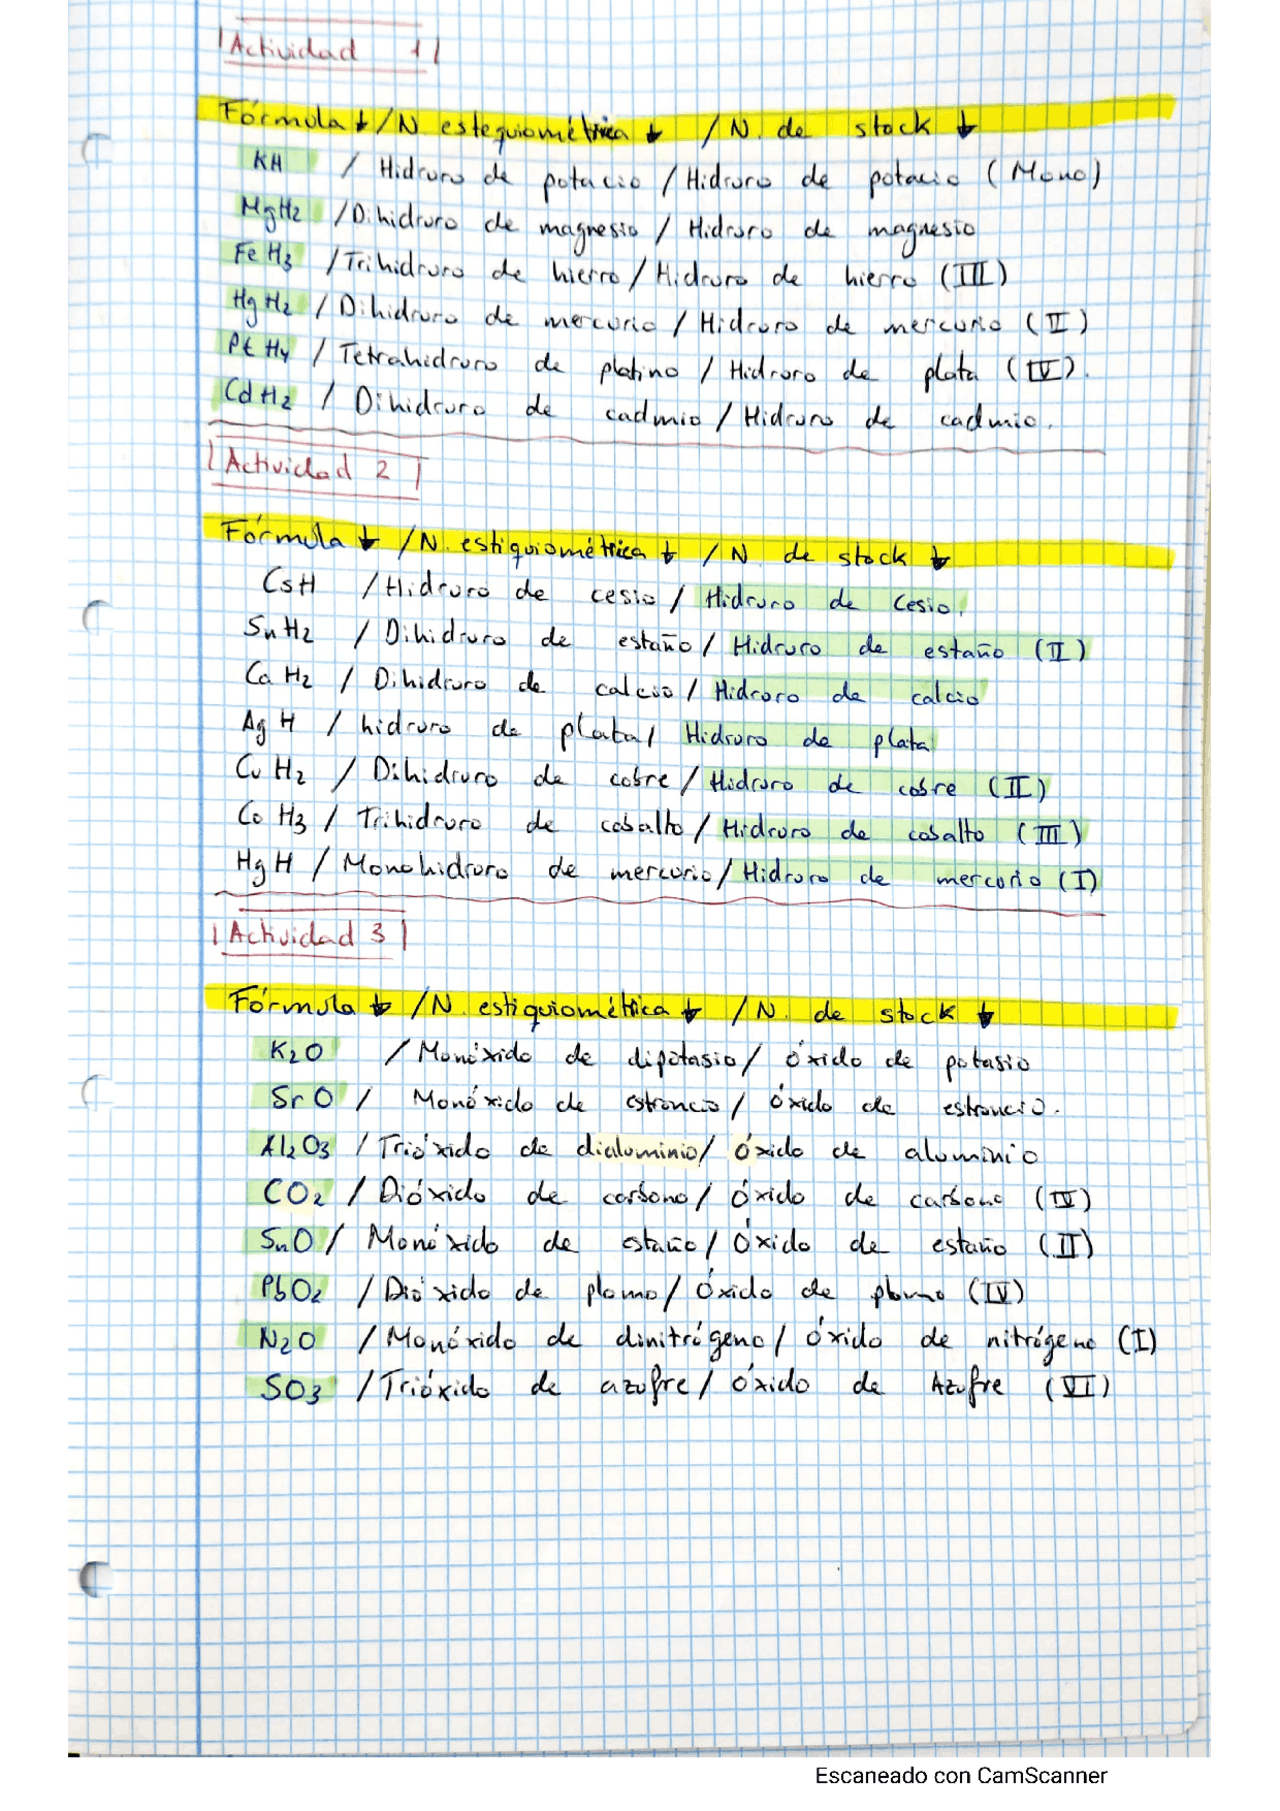 Actividad 1
Fórmula ↓ / N. estequiométrica ↓ / N. de stock ↓
KH / Hidruro de potacio / Hidruro de potacio (Mono)
MgH2 / Dihidruro de magnesio / Hidruro de magnesio
FeH3 / Trihidruro de hierro / Hidruro de hierro (III)
HgH2 / Dihidruro de mercurio / Hidruro de mercurio (II)
PtH4 / Tetrahidruro de platino / Hidruro de plata (IV).
CdH2 / Dihidruro de cadmio / Hidruro de cadmio.
Actividad 2
Fórmula ↓ / N. estiquiométrica ↓ / N. de stock ↓
CsH / Hidruro de cesio / Hidruro de Cesio.
SnH2 / Dihidruro de estaño / Hidruro de estaño (II)
CaH2 / Dihidruro de calcio / Hidruro de calcio
AgH / hidruro de plata / Hidruro de plata
CuH2 / Dihidruro de cobre / Hidruro de cobre (II)
CoH3 / Trihidruro de cobalto / Hidruro de cobalto (III)
HgH / Monohidruro de mercurio / Hidruro de mercurio (I)
Actividad 3
Fórmula ↓ / N. estiquiométrica ↓ / N. de stock ↓
K2O / Monóxido de dipotasio / óxido de potasio
SrO / Monóxido de estroncio / óxido de estroncio.
Al2O3 / Trióxido de dialuminio / óxido de aluminio
CO2 / Dióxido de carbono / óxido de carbono (IV)
SnO / Monóxido de estaño / óxido de estaño (II)
PbO2 / Dióxido de plomo / Óxido de plomo (IV)
N2O / Monóxido de dinitrógeno / óxido de nitrógeno (I)
SO3 / Trióxido de azufre / óxido de Azufre (VI)
Escaneado con CamScanner